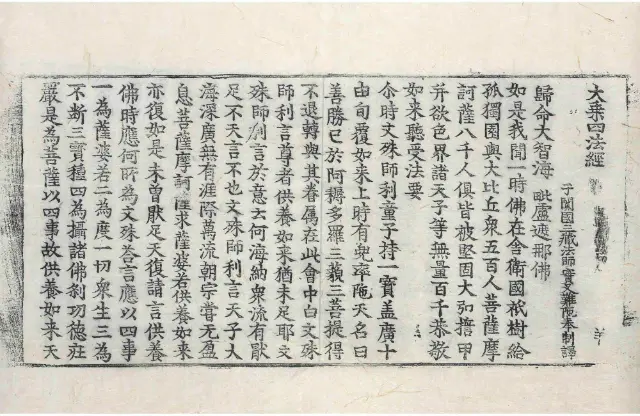 大乘四法經
于闐國三藏法師實叉難陁奉制譯
歸命大智海 毗盧遮那佛
如是我聞一時佛在舍衛國祇樹給
孤獨園與大比丘衆五百人菩薩摩
訶薩八千人俱皆被堅固大弘擔甲
并欲色界諸天子等無量百千恭敬
如来聽受法要
尒時文殊師利童子持一寶盖廣十
由旬覆如来上時有兜率陁天名曰
善勝已於阿耨多羅三藐三菩提得
不退轉與其眷屬在此會中白文殊
師利言尊者供養如来猶未足耶文
殊師利言於意云何海納衆流有猒
足不天言不也文殊師利言天子大
海深廣無有涯際萬流朝宗甞無盈
息菩薩摩訶薩求薩婆若供養如来
亦復如是未曽猒足天復請言供養
佛時應何所為文殊荅言應以四事
一為薩婆若二為度一切衆生三為
不斷三寶種四為攝諸佛刹功德莊
嚴是為菩薩以四事故供養如来天